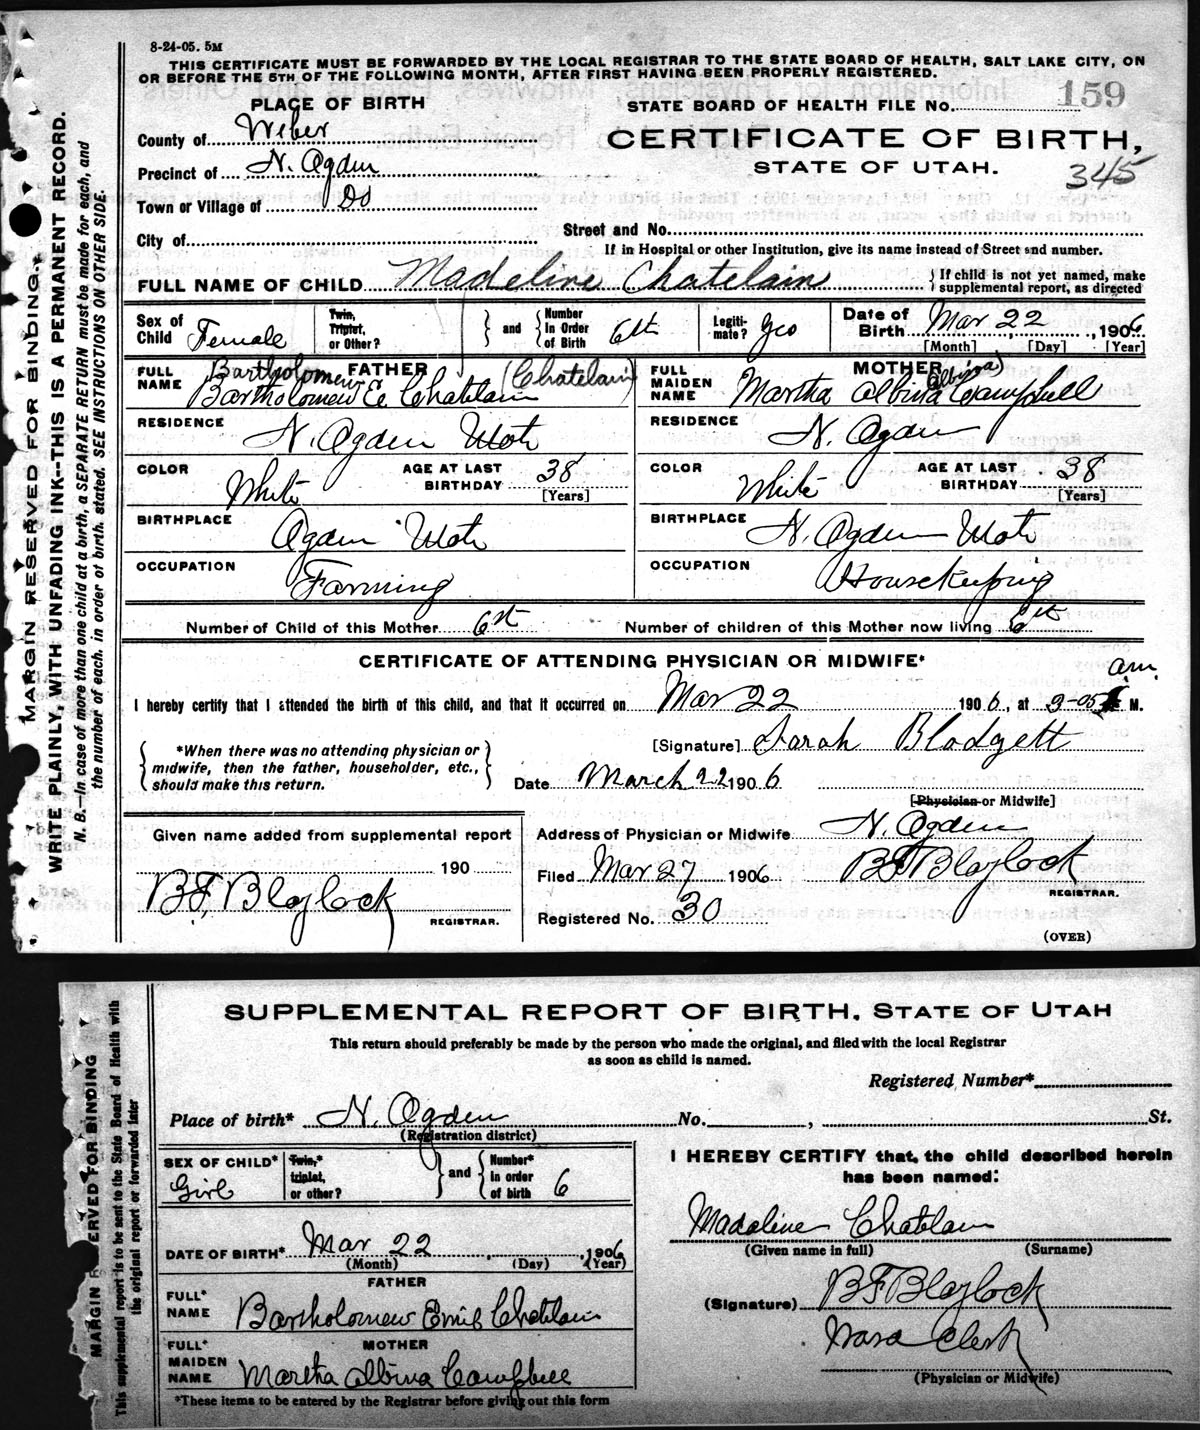 8-24-05. 5M
THIS CERTIFICATE MUST BE FORWARDED BY THE LOCAL REGISTRAR TO THE STATE BOARD OF HEALTH, SALT LAKE CITY, ON
OR BEFORE THE 5TH OF THE FOLLOWING MONTH, AFTER FIRST HAVING BEEN PROPERLY REGISTERED.
MARGIN RESERVED FOR BINDING.
WRITE PLAINLY, WITH UNFADING INK--THIS IS A PERMANENT RECORD.
N. B.—In case of more than one child at a birth, a SEPARATE RETURN must be made for each, and
the number of each, in order of birth, stated. SEE INSTRUCTIONS ON OTHER SIDE.
PLACE OF BIRTH
STATE BOARD OF HEALTH FILE NO. 159
County of Weber
CERTIFICATE OF BIRTH,
STATE OF UTAH.
345
Precinct of N. Ogden
Town or Village of Do
City of
Street and No.
If in Hospital or other Institution, give its name instead of Street and number.
FULL NAME OF CHILD Madeline Chatelain
} If child is not yet named, make
supplemental report, as directed
Sex of Child Female
Twin, Triplet, or Other?
} and { Number In Order of Birth 6th
Legitimate? yes
Date of Birth Mar 22, 1906
[Month] [Day] [Year]
FATHER
FULL NAME Bartholomew E Chatelain (Chatelain)
Bartholomew
MOTHER
FULL MAIDEN NAME Martha Albina Campbell
(Albina)
RESIDENCE N. Ogden Utah
RESIDENCE N. Ogden
COLOR White AGE AT LAST BIRTHDAY 38 [Years]
COLOR White AGE AT LAST BIRTHDAY 38 [Years]
BIRTHPLACE Ogden Utah
BIRTHPLACE N. Ogden Utah
OCCUPATION Farming
OCCUPATION Housekeeping
Number of Child of this Mother 6th
Number of children of this Mother now living 6th
CERTIFICATE OF ATTENDING PHYSICIAN OR MIDWIFE*
I hereby certify that I attended the birth of this child, and that it occurred on Mar 22 1906, at 3-05 a.m. M.
{ *When there was no attending physician or
midwife, then the father, householder, etc.,
should make this return. }
[Signature] Sarah Blodgett
Date March 22 1906
[Physician or Midwife]
Given name added from supplemental report
190
B.F. Blaylock
REGISTRAR.
Address of Physician or Midwife N. Ogden
Filed Mar 27 1906 BF Blaylock
REGISTRAR.
Registered No. 30
(OVER)
MARGIN RESERVED FOR BINDING
This supplemental report is to be sent to the State Board of Health with
the original report or forwarded later
SUPPLEMENTAL REPORT OF BIRTH, STATE OF UTAH
This return should preferably be made by the person who made the original, and filed with the local Registrar
as soon as child is named.
Registered Number*
Place of birth* N. Ogden No. , St.
(Registration district)
SEX OF CHILD* Girl
Twin,* triplet, or other?
} and { Number* in order of birth 6
I HEREBY CERTIFY that, the child described herein
has been named:
Madaline Chatelain
(Given name in full) (Surname)
DATE OF BIRTH* Mar 22, 1906
(Month) (Day) (Year)
FATHER
FULL* NAME Bartholomew Emil Chatelain
MOTHER
FULL* MAIDEN NAME Martha Albina Campbell
(Signature) BF Blaylock
Ward Clerk
(Physician or Midwife)
*These items to be entered by the Registrar before giving out this form